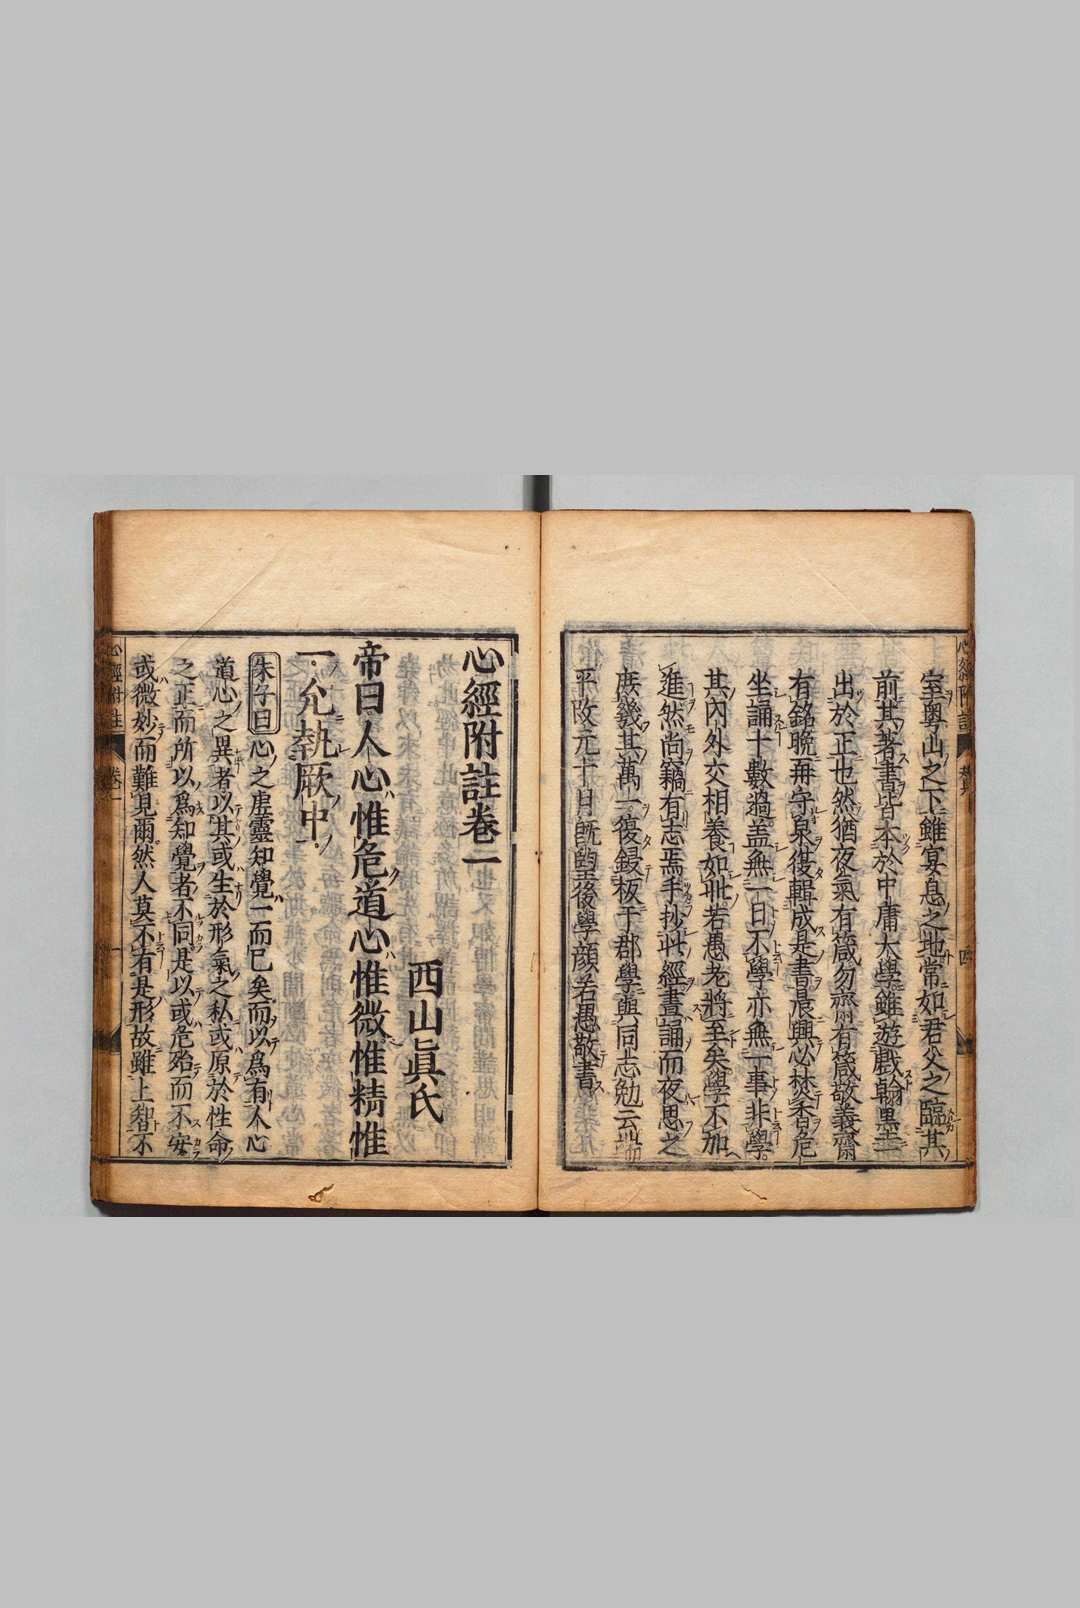 室粤山之下雖宴息之地常如君父之臨其
前其著書皆本於中庸大學雖遊戲翰墨一
出於正也然猶夜氣有箴勿齋有箴敬義齋
有銘晩再守泉復輯成是書晨興必焚香危
坐誦十數過盖無一日不學亦無一事非學
其内外交相養如此若愚老將至矣學不加
進然尚竊有志焉手抄此經晝誦而夜思之
庶幾其萬一復鋟板于郡學與同志勉云端
平改元十月既望後學顔若愚敬書
心經附註卷一
西山眞氏
帝曰人心惟危道心惟微惟精惟
一允執厥中
朱子曰心之虚靈知覺一而已矣而以爲有人心
道心之異者以其或生於形氣之私或原於性命
之正而所以爲知覺者不同是以或危殆而不安
或微妙而難見爾然人莫不有是形故雖上智不
心經附註 卷一 一